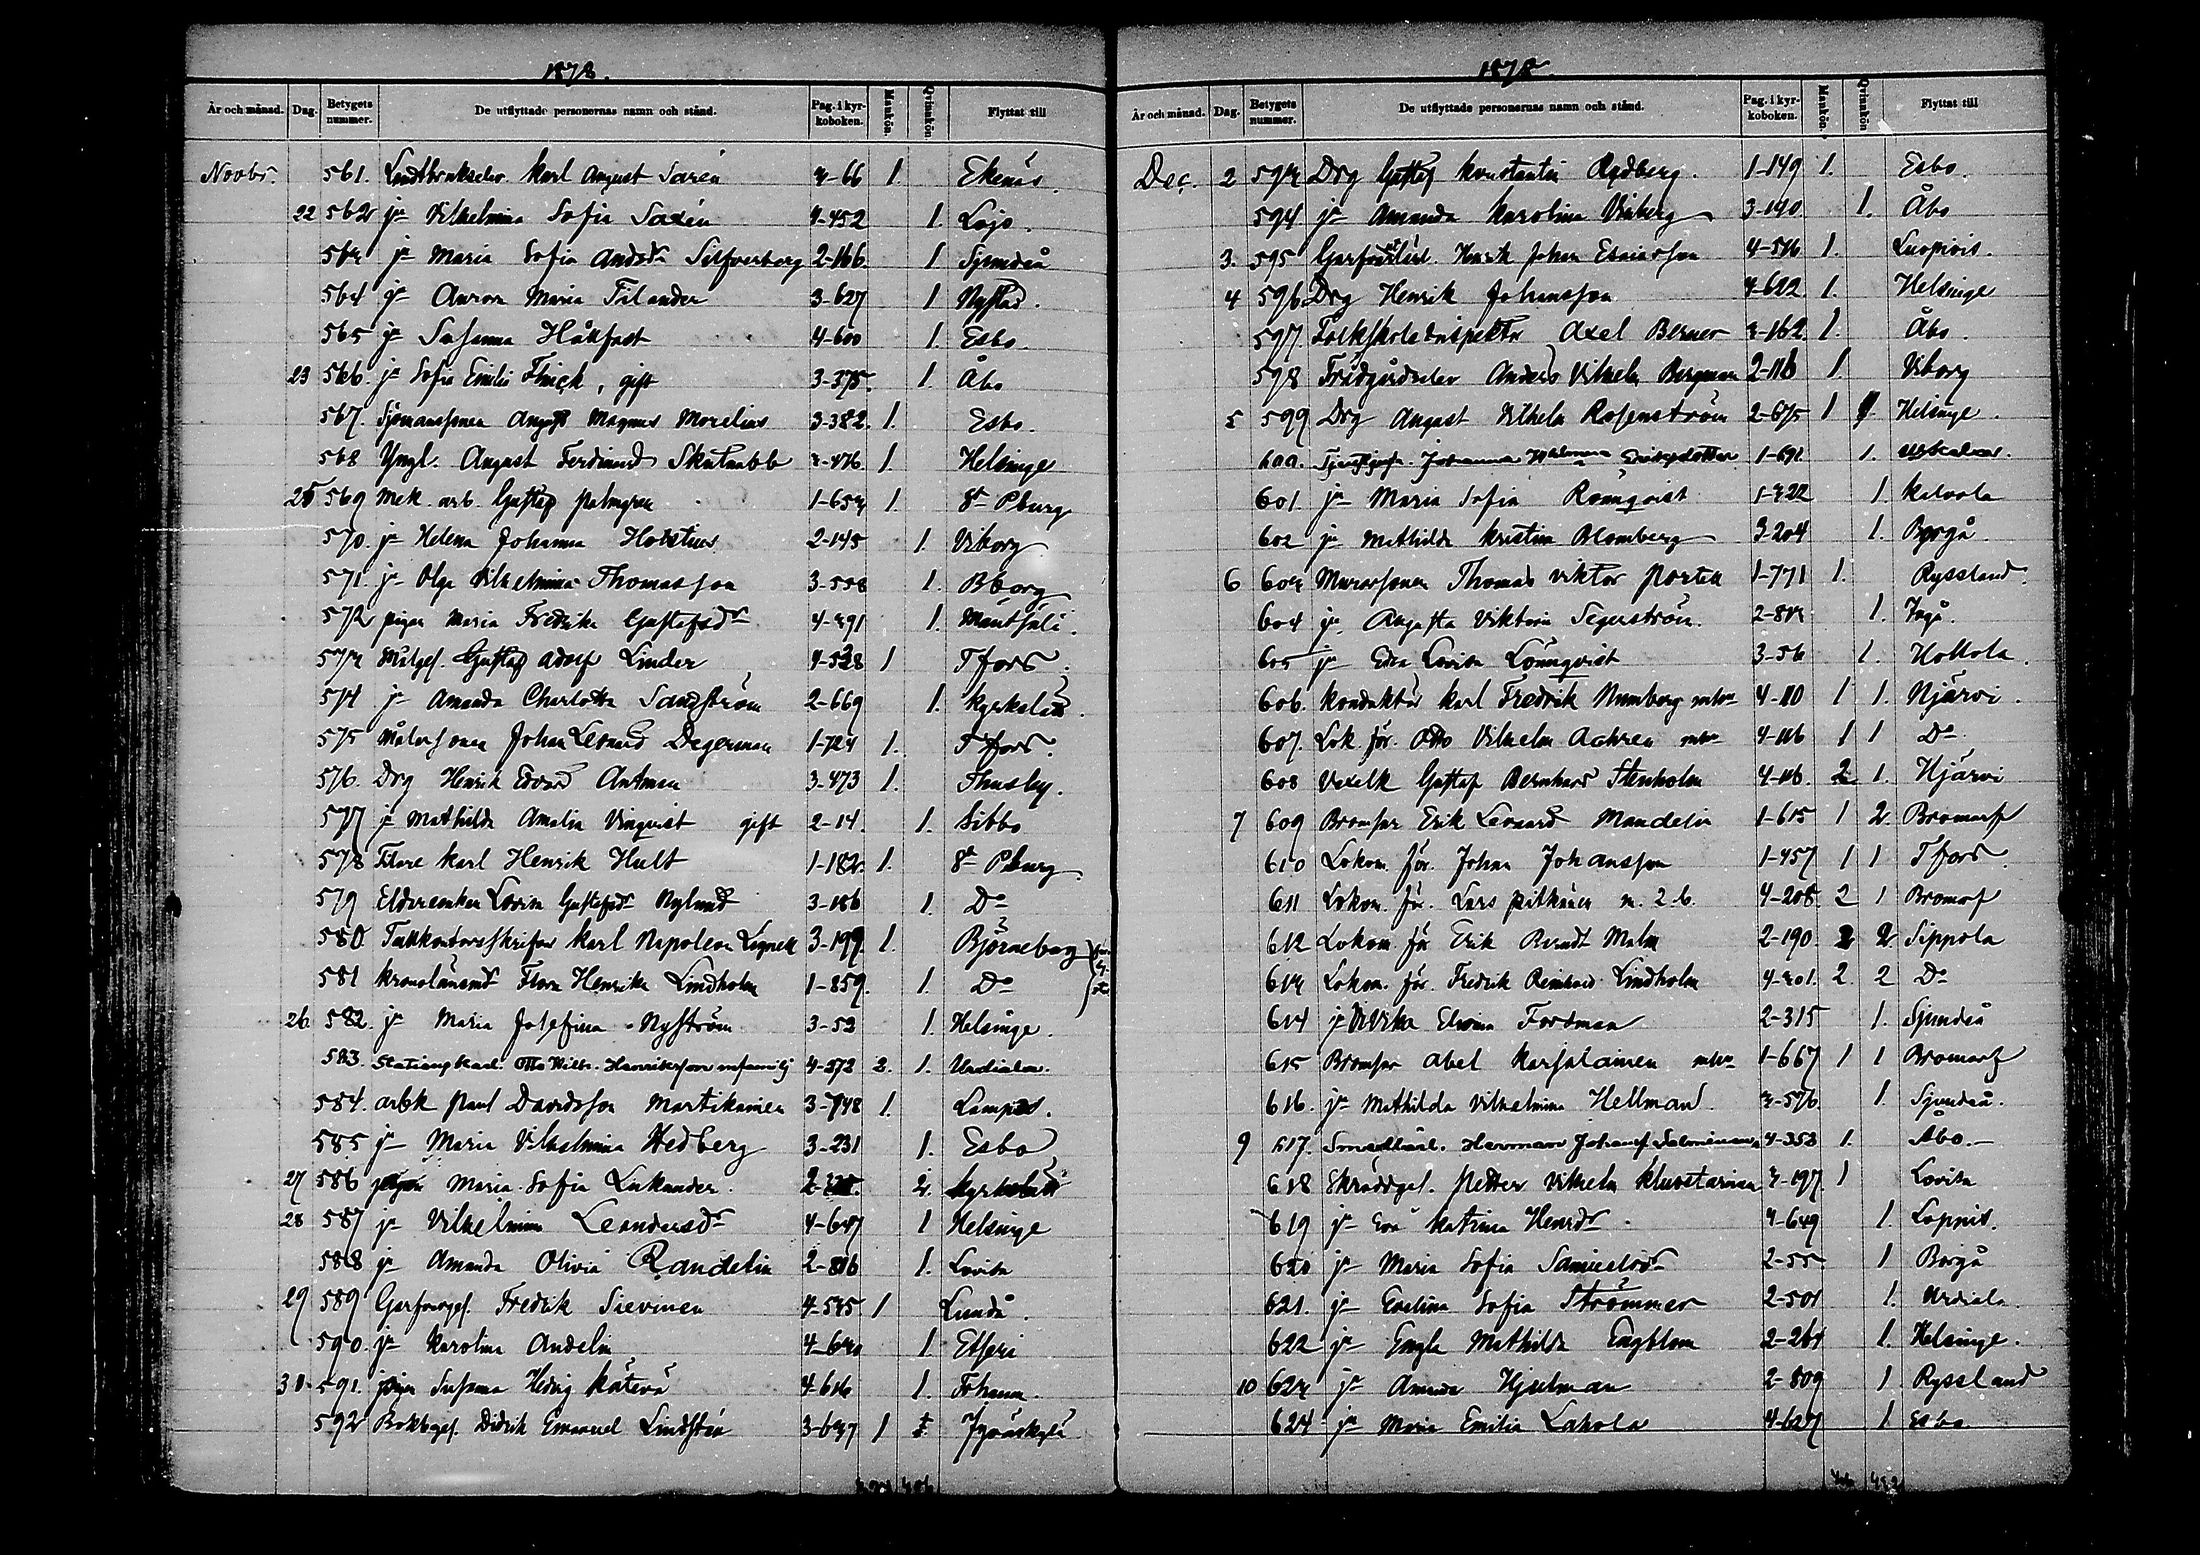 1878.
År och månad. Dag. Betygets nummer. De utflyttade personernas namn och stånd. Pag. i kyrkoboken. Mankön. Qvinnkön. Flyttat till
Novbr. 561. Karl August 3-66 1. Ekenäs.
22 562 jn Vilhelmina Sofia Saxén 4-452 1. Lojo.
jn Maria Sofia Andsdr Silfverberg 2-166. 1 Sjundeå
564 jn Aurora Maria Tilander 3-627 1 Nystad.
565 jn Susanna Håkfast 4-600 1. Esbo.
23 566. jn Sofia Emilia Flinck, gift 3-375. 1. Åbo
567. August Magnus Morelius 3-382. 1. Esbo.
568 Yngl. August Ferdinand Skutnabb 3-476 1. Helsinge
25 569 Mek. arb. Gustaf Palmgren 1-653 1. St Pburg
570. jn Helena Johanna 2-145 1. Viborg
571. jn Olga Vilhelmina Thomasson 3-558 1. Bborg
572 pigan Maria Fredrika Gustafsdr 4-391 1. Mäntsälä.
573 Målgef. Gustaf Adolf Linder 4-528 1 Tfors.
574 jn Amanda Charlotta Sandström 2-669 1. Kyrkslätt.
575 Johan Leonard Degerman 1-724 1. Tfors.
576. Drg Henrik Edvard Antman 3-473 1. Thusby.
577 jn Mathilda Amalia Vinqvist gift 2-14. 1. Sibbo
578 Karl Henrik Hult 1-182. 1. St Pburg
579 Lovisa Gustafsdr Nylund 3-186 1. Do
580. Karl Napoleon 3-199. 1. Björneborg
581 Flora Henrika Lindholm 1-859. 1. Do
26 582. jn Maria Josefina Nyström 3-52 1. Helsinge.
583. Stationskarl. Otto Wilh. Henriksson m familj 4-572 2. 1. Urdiala.
584. arbk Paul Davidsson Martikainen 3-748 1.
585 jn Maria Vilhelmina Hedberg 3-231 1. Esbo
27 586 pigan Maria Sofia Lukander. 2. Kyrkslätt
28 587 jn Vilhelmina Leandersdr 4-647 1 Helsinge
588 jn Amanda Olivia Randelin 2-816 1. Lovisa
29 589 Garfvargef. Fredrik Sievinen 4-535 1
590. jn Karolina Andelin 4-640 1 Etseri
30. 591. pigan Susanna Hedvig 4-616 1.
592 Bokbgef. Didrik Emanuel Lindstén 3-637 1 Jyväskylä
1878
År och månad. Dag. Betygets nummer. De utflyttade personernas namn och stånd. Pag. i kyrkoboken. Mankön. Qvinnkön Flyttat till
Dec. 2 593 Drg Gustaf Konstantin Rydberg. 1-149 1. Esbo.
594 jn Amanda Karolina Vikberg 3-140 1. Åbo
3. 595 Henrik Johan Esaiasson 4-516 1. Luopiois.
4 596. Drg Henrik Johansson 4-622 1. Helsinge
597. Folkskoleinspektor Axel Berner 3-162 1. Åbo.
598 Trädgårdselev Anders Vilhelm Bergman 2-118 1 Viborg
5 599 Drg August Vilhelm Rosenström 2-675 1 Helsinge.
600. Johanna 1-691 1.
601. jn Maria Sofia Rönnqvist 1-322 1. Kalvola
602 jn Mathilda Kristina Blomberg 3-204 1. Borgå
6 603 Thomas Viktor 1-771 1. Ryssland.
604 jn. Augusta Viktoria Segerström. 2-813 1. Ingå.
605 jn Edla Lovisa Lönnqvist 3-56 1. Hollola.
606. Konduktör Karl Fredrik 4-110 1 1. Hjärvi.
607. Lok. för. Otto Vilhelm 4-116 1 1 Do
608 Gustaf Bernhard Stenholm 4-116 2 1. Hjärvi
7 609 Bromsar Erik Leonard Mandelin 1-615 1 2. Bromarf
610 Lokom. för. Johan Johansson 1-457 1 1 Tfors
611 Lokom. för. Lars Pitkänen m. 2 b. 4-208 2 1 Bromarf
612 Lokom. för Erik Berndt Malm 2-190. 2 2 Sippola
613 Lokom. för. Fredrik Reinhold Lindholm 4-301. 2. 2 Do
614 jn Edvina Forsman 2-315 1. Sjundeå
615 Bromsar Abel Karjalainen 1-667 1 1 Bromarf
616. jn Mathilda Vilhelmina Hellman. 3-576. 1. Sjundeå.
9 617. Herrman Johansf. 4-353 1. Åbo.
618 Skräddgef. Petter Vilhelm 3-197. 1 Lovisa
619 jn Eva Katrina Henrsdr 4-649 1. Loppis.
620 jn Maria Sofia Samuelsdr 2-55 1 Borgå
621. jn Evelina Sofia Strömmer 2-501 1. Urdiala.
622 jn Engla Mathilda Engblom 2-264 1. Helsinge.
10 623 jn Amanda Hjelman 2-809 1 Ryssland
624 jn Maria Emilia Lahola 4-627 1. Esbo